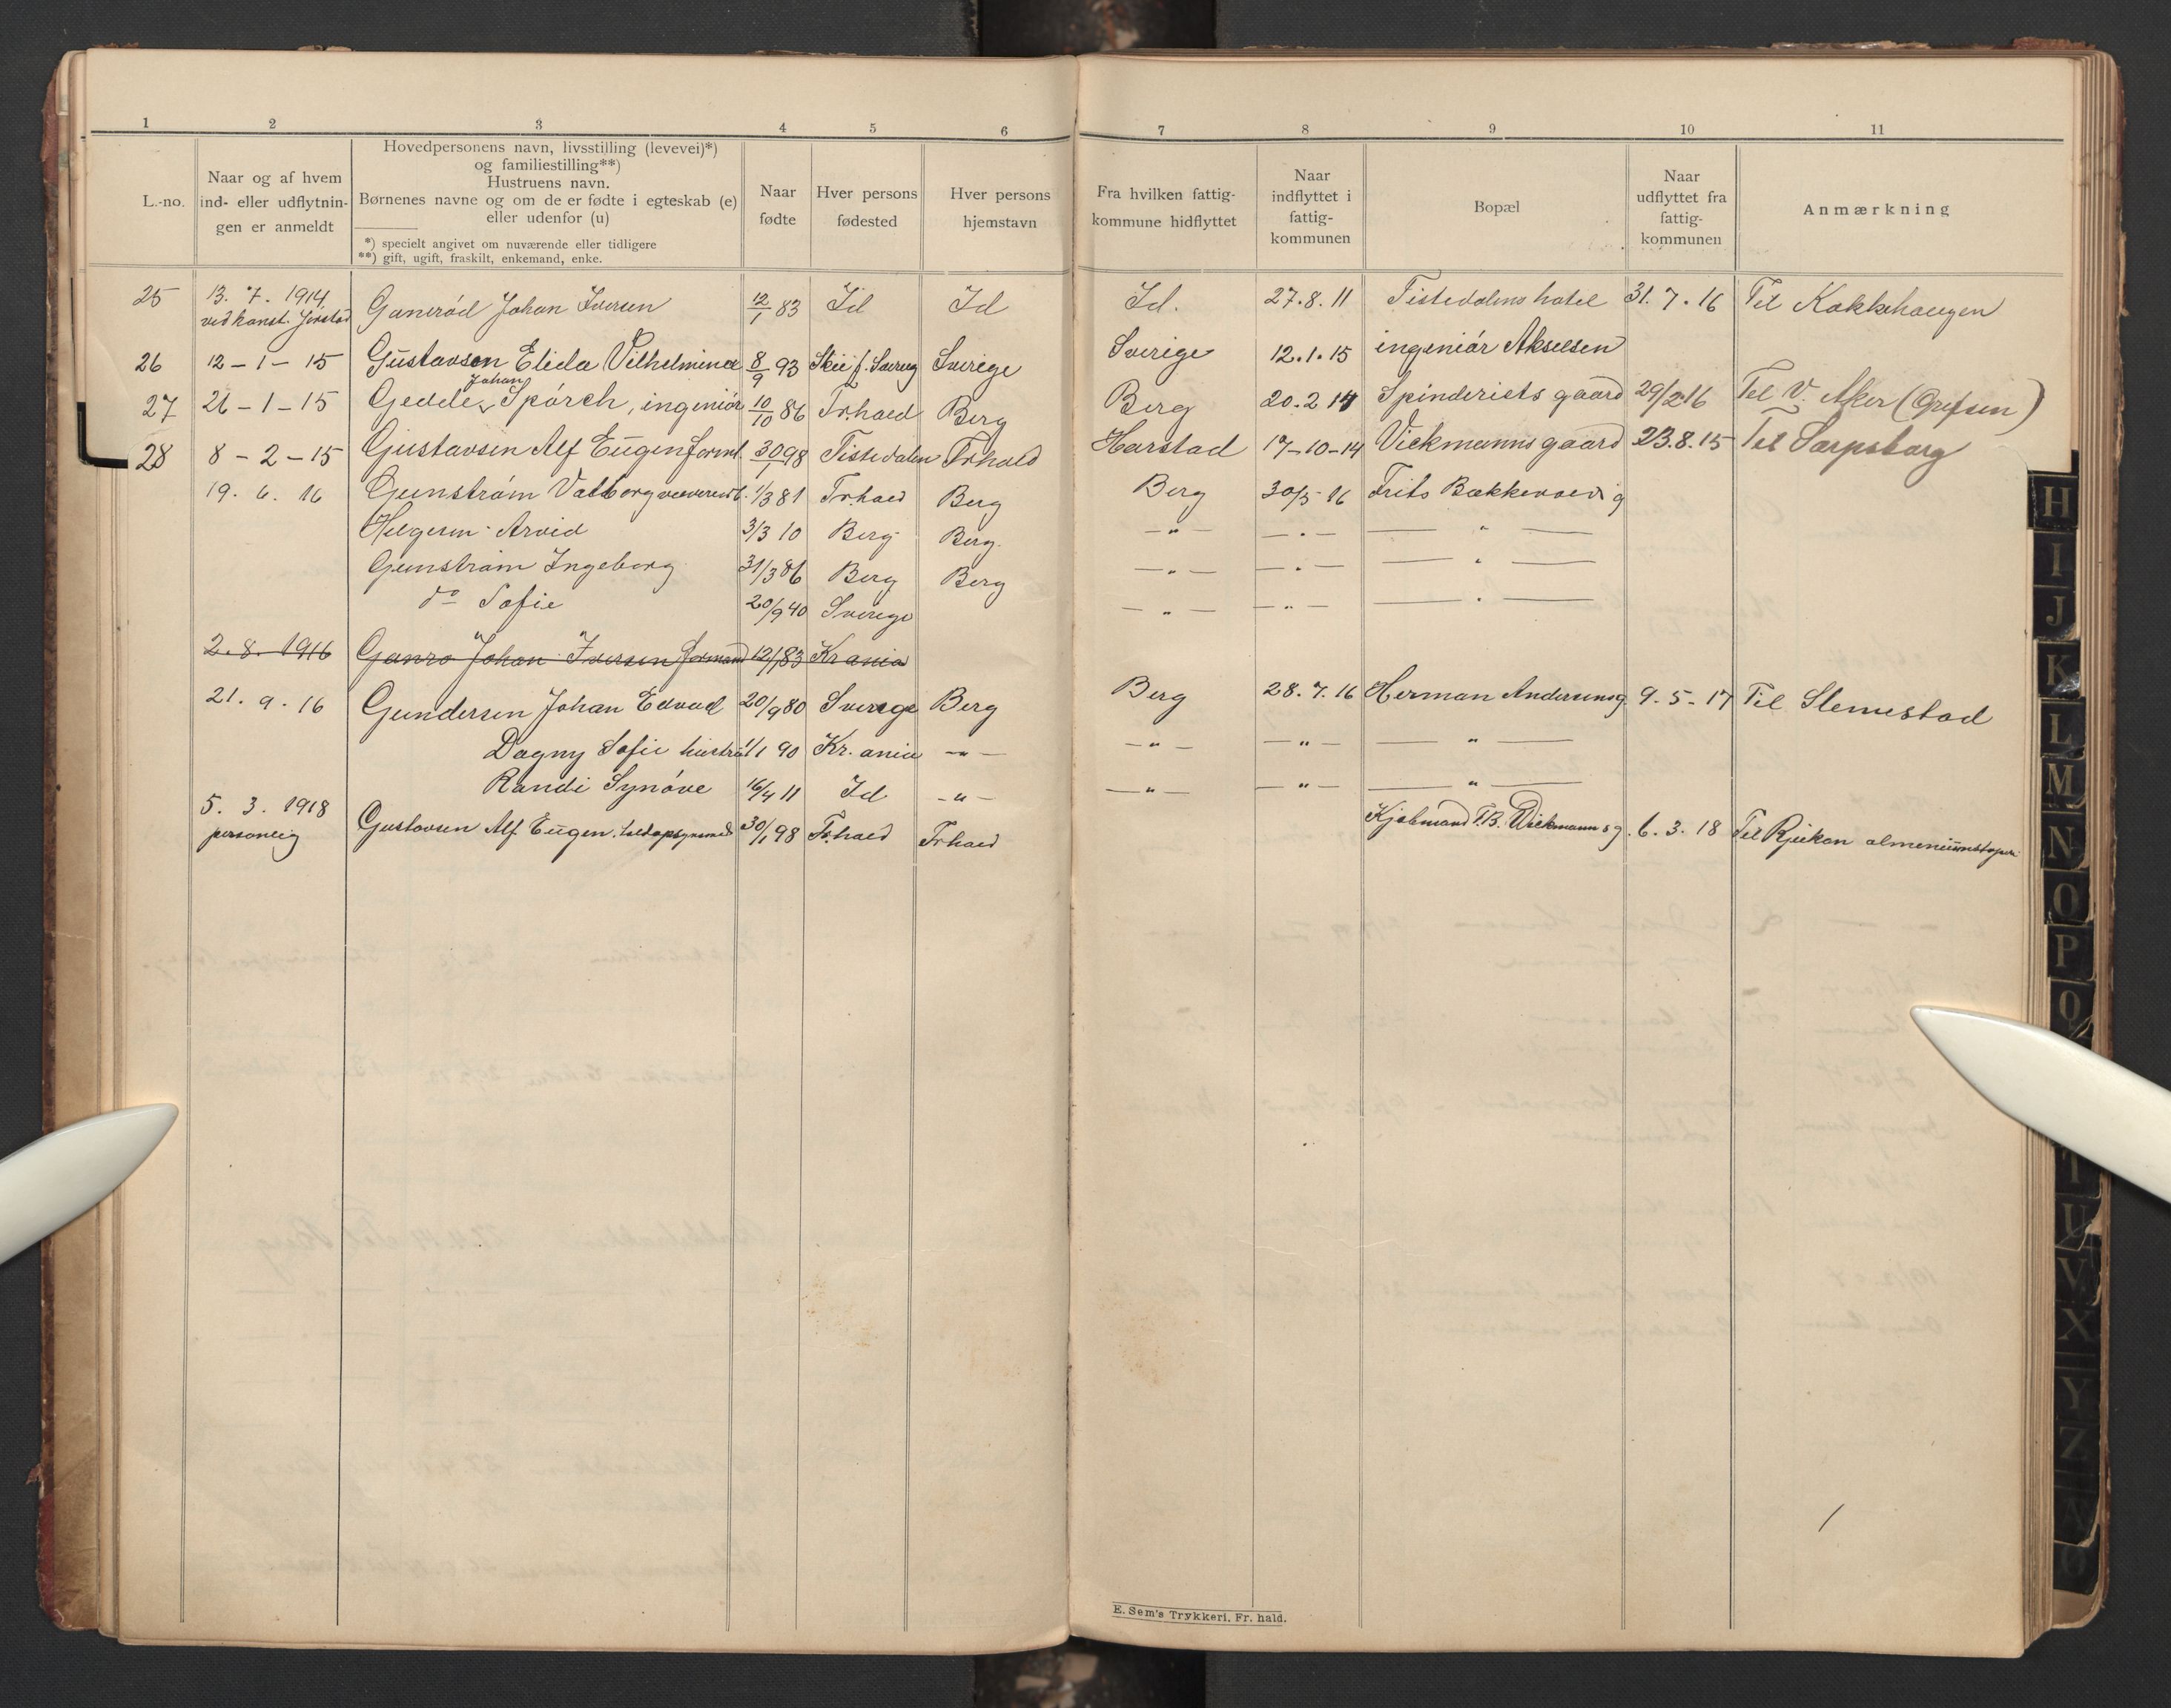 1 2 3 4 5 6 7 8 9 10 11
L.-no.
Naar og af hvem
ind- eller udflytnin-
gen er anmeldt
Hovedpersonens navn, livsstilling (levevei)*)
og familiestilling**)
Hustruens navn.
Børnenes navne og om de er fødte i egteskab (e)
eller udenfor (u)
*) specielt angivet om nuværende eller tidligere
**) gift, ugift, fraskilt, enkemand, enke.
Naar
fødte
Hver persons
fødested
Hver persons
hjemstavn
Fra hvilken fattig-
kommune hidflyttet
Naar
indflyttet i
fattig-
kommunen
Bopæl
Naar
udflyttet fra
fattig-
kommunen
Anmærkning
25 13. 7. 1914 Ganerød Johan Iversen 12/1 83 Id Id Id. 27.8.11 Tistedalens hotel 31.7.16 Til Kakkehaugen
ved konst. Jerstad
26 12-1-15 Gustavsen Elida Vilhelmine 8/9 93 Sverig Sverige Sverige 12.1.15 ingeniør Akselsen
Johan
27 26-1-15 Gedde Spörck, ingeniør 10/10 86 Fr.hald Berg Berg 20.2 14 Spinderiets gaard 29/2 16 Til V. Aker (Grefsen)
28 8-2-15 Gustavsen Alf Eugen 30/1 98 Tistedalen Frhald Harstad 17-10-14 Viekmanns gaard 23.8.15 Til Sarpsborg
19. 6. 16 Gunström Valborg 1/3 81 Fr.hald Berg Berg 30/5 16 Frits Bækkevold g
Helgesen Arvid 3/3 10 Berg Berg. — " — — " — — " —
Gunström Ingeborg 31/3 86 Berg Berg — " — — " — — " —
do Sofie 20/9 40 Sverige — " — — " — — " —
2. 8. 1916 Ganrø Johan Iversen formand 12/1 83 Kr ania
21. 9. 16 Gundersen Johan Edvad 20/9 80 Sverige Berg Berg 28.7.16 Herman Andersens g 9-5-17 Til Slemestad
Dagny Sofie hustru 1/1 90 Kr. ania — " — — " — — " — — " —
Randi Synöve 16/4 11 Id — " — — " — — " — — " —
5. 3. 1918 Gustavsen Alf Eugen. 30/1 98 Fr.hald Frhald Kjøbmand T.B. Wiekmanns g. 6. 3. 18 Til Rjukan
personlig
E. Sem's Trykkeri, Fr. hald.
H
I
J
K
L
M
N
O
P
Q
T
U
V
X
Y
Z